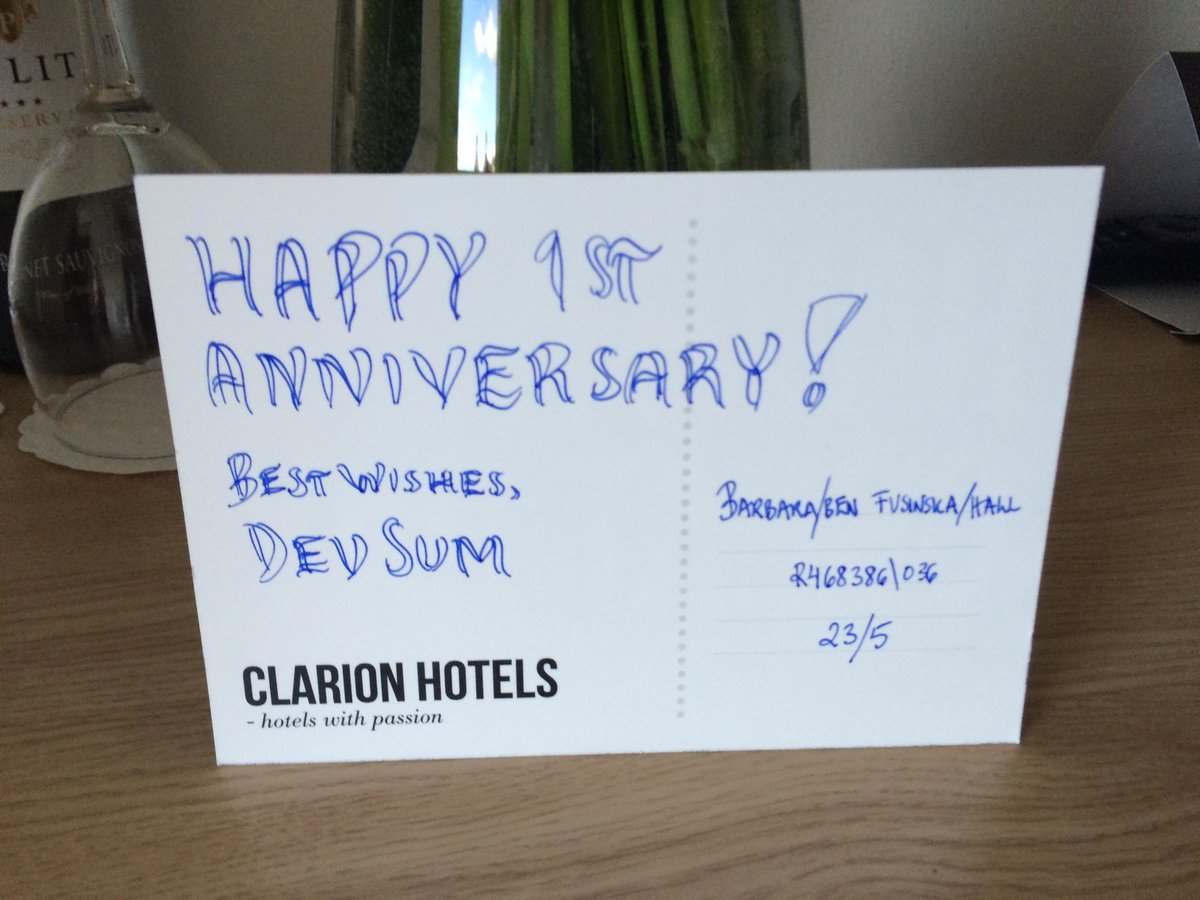 LIT
HAPPY 1ST
ANNIVERSARY!
BEST WISHES,
DEV SUM
CLARION HOTELS
- hotels with passion
BARBARA/BEN FUSINSKA/HALL
R468386\036
23/5